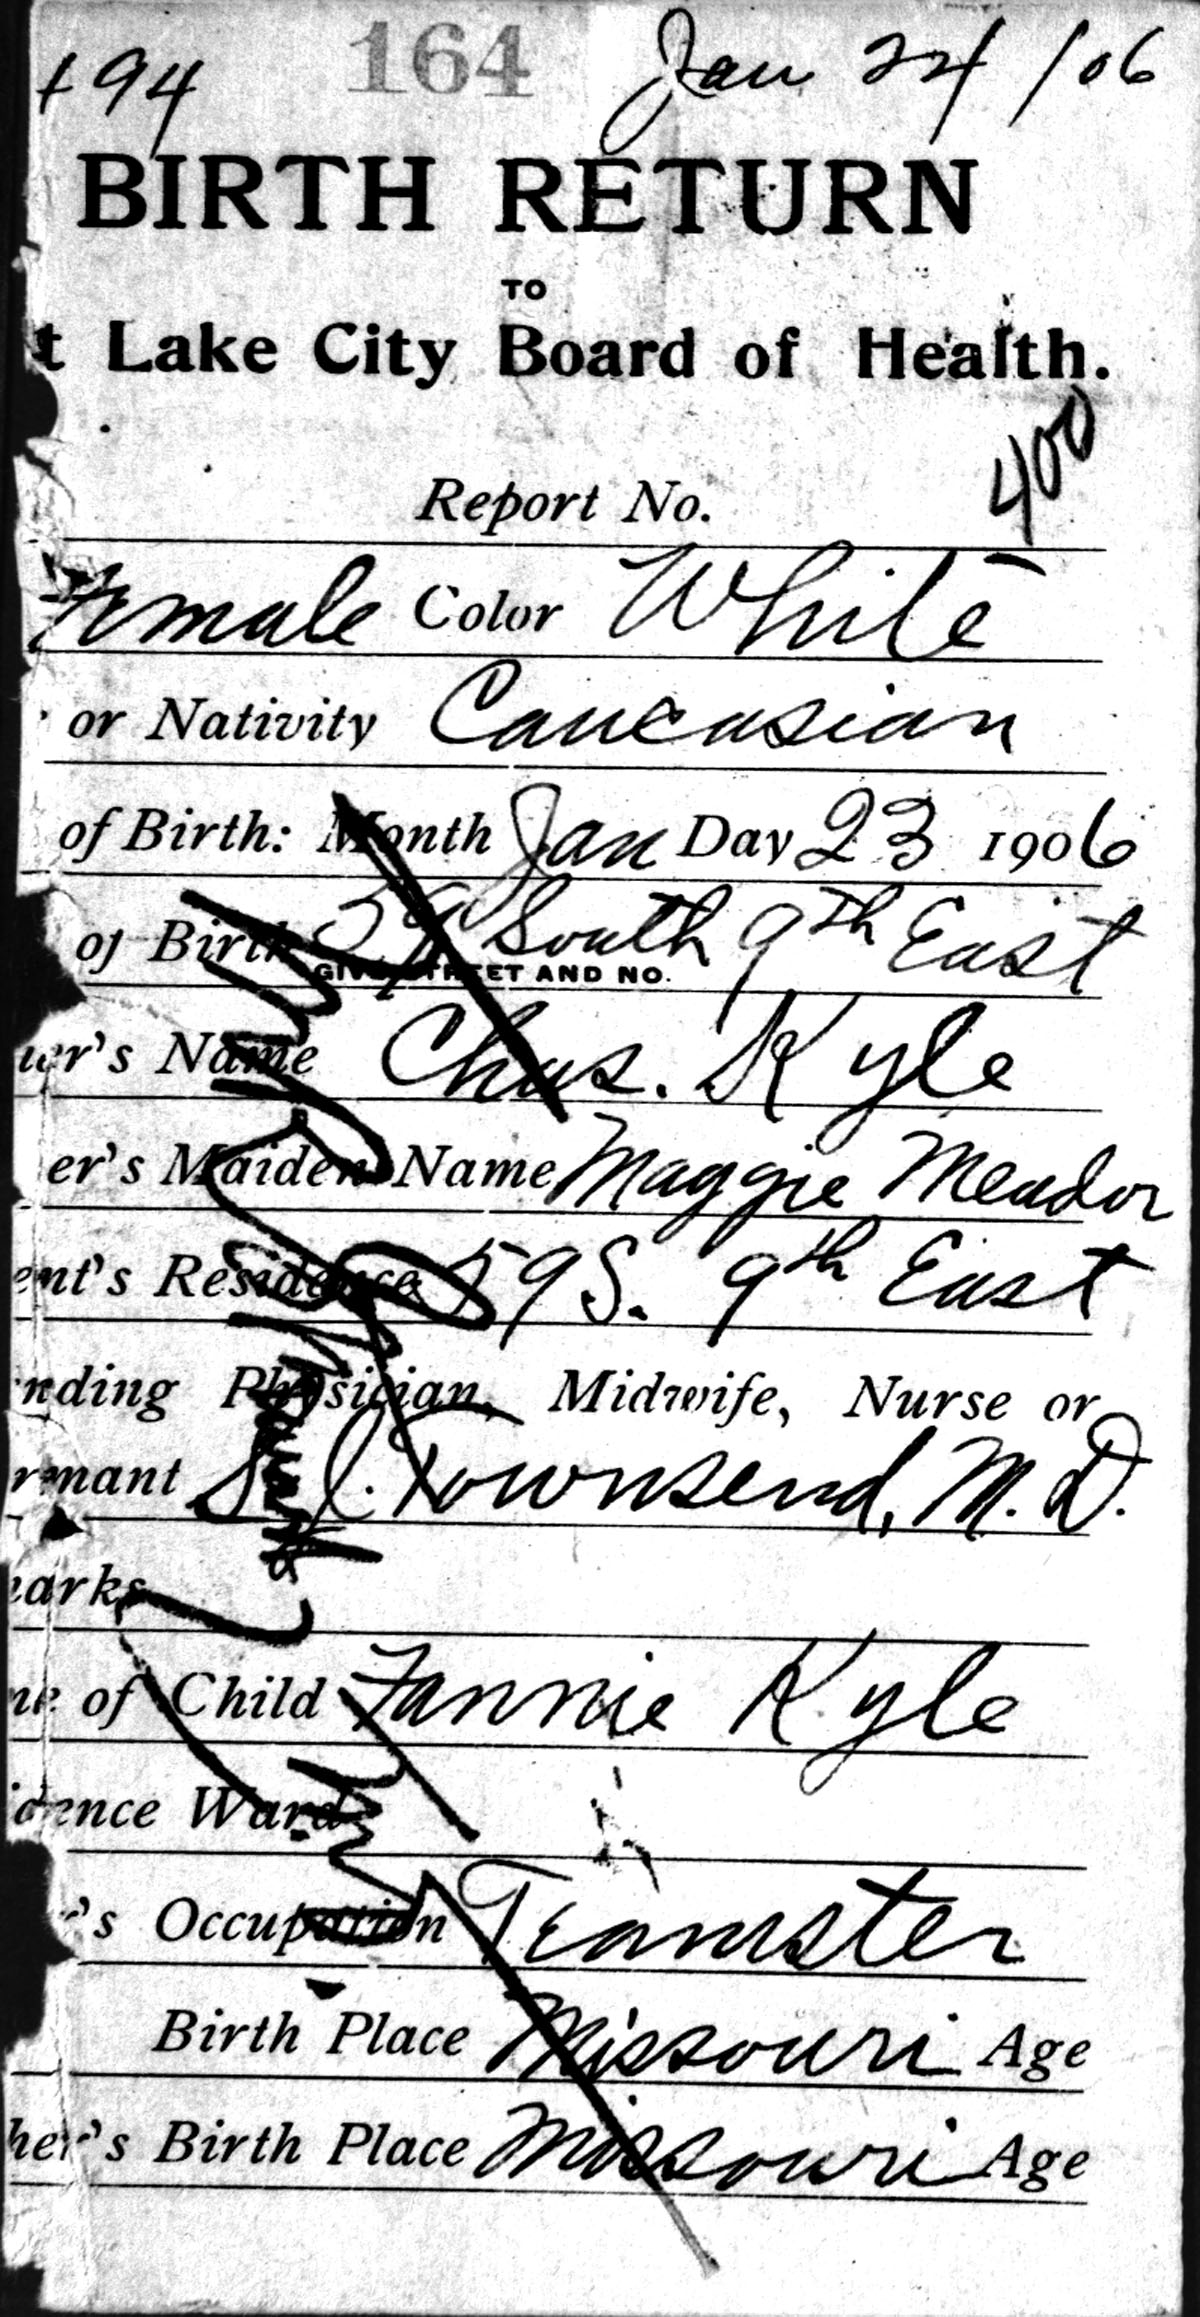 194 164 Jan 24 /06
BIRTH RETURN
TO
t Lake City Board of Health.
400
Report No.
Female Color White
or Nativity Caucasian
of Birth: Month Jan Day 23 1906
of Birth 59 South 9th East
GIVE STREET AND NO.
her's Name Chas. Kyle
er's Maiden Name Maggie Meador
ent's Residence 59 S. 9th East
nding Physician, Midwife, Nurse or
rmant Townsend, M. D.
arks
me of Child Fannie Kyle
idence Ward
r's Occupation Teamster
Birth Place Missouri Age
her's Birth Place Missouri Age